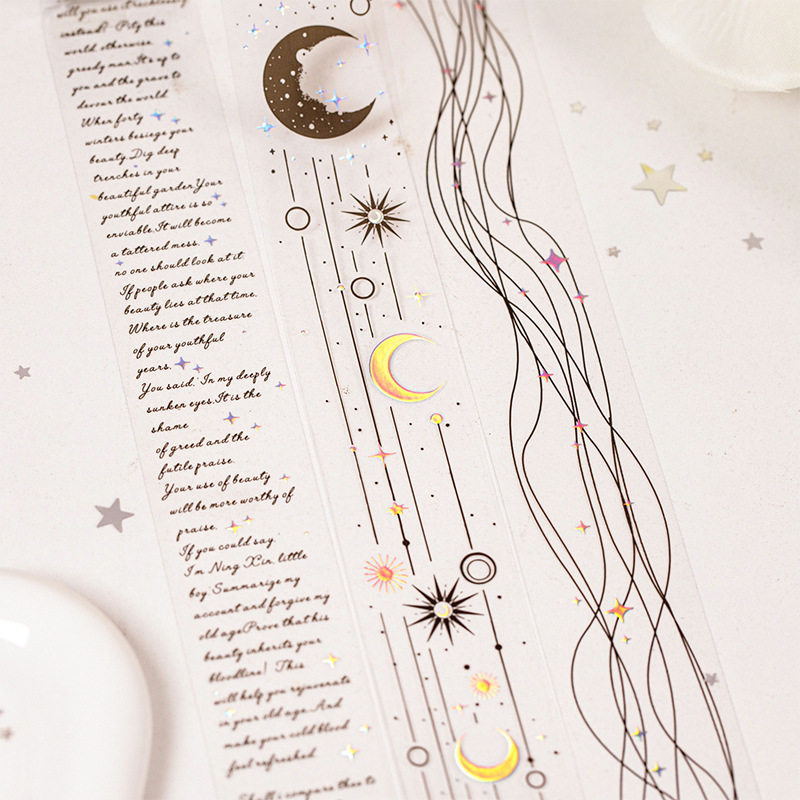 will you use it recklessly
instead? Pity this
world otherwise.
greedy man.It's up to
you and the grave to
devour the world
When forty
winters besiege your
beauty.Dig deep
trenches in your
beautiful garden.Your
youthful attire is so
enviable.It will become
a tattered mess.
no one should look at it.
If people ask where your
beauty lies at that time.
Where is the treasure
of your youthful
years.
You said: In my deeply
sunken eyes.It is the
shame
of greed and the
futile praise.
Your use of beauty
will be more worthy of
praise.
If you could say.
I'm Ning Xin. little
boy Summarize my
account and forgive my
old ageProve that his
beauty inherits your
bloodline! This
will help you rejuvenate
in your old age. And
make your cold blood
feel refreshed.
compare thee to